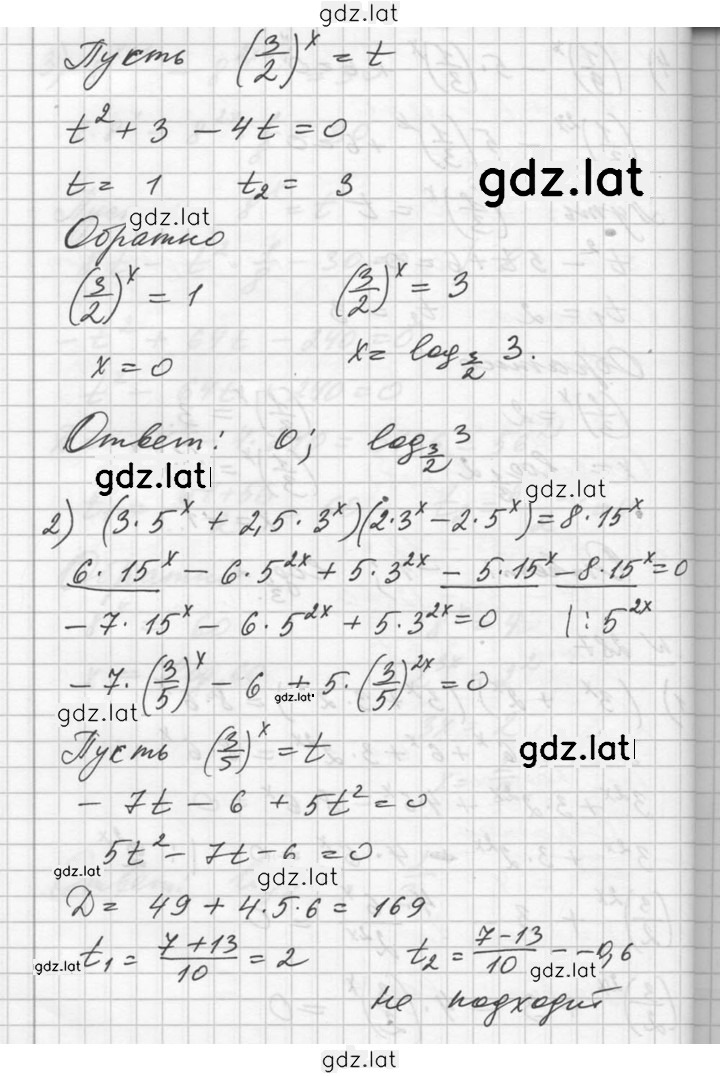 gdz.lat
Пусть (3/2)^x = t
t² + 3 − 4t = 0
t = 1 t₂ = 3
gdz.lat
gdz.lat
Обратно
(3/2)^x = 1 (3/2)^x = 3
x = 0 x = log_{3/2} 3.
Ответ: 0; log_{3/2} 3
gdz.lat
gdz.lat
2) (3·5^x + 2,5·3^x)(2·3^x − 2·5^x) = 8·15^x
6·15^x − 6·5^{2x} + 5·3^{2x} − 5·15^x − 8·15^x = 0
− 7·15^x − 6·5^{2x} + 5·3^{2x} = 0 |: 5^{2x}
− 7·(3/5)^x − 6 + 5·(3/5)^{2x} = 0
gdz.lat
gdz.lat
Пусть (3/5)^x = t
gdz.lat
− 7t − 6 + 5t² = 0
5t² − 7t − 6 = 0
gdz.lat
gdz.lat
D = 49 + 4·5·6 = 169
t₁ = (7+13)/10 = 2 t₂ = (7−13)/10 = −0,6
gdz.lat
gdz.lat
не подходит
gdz.lat